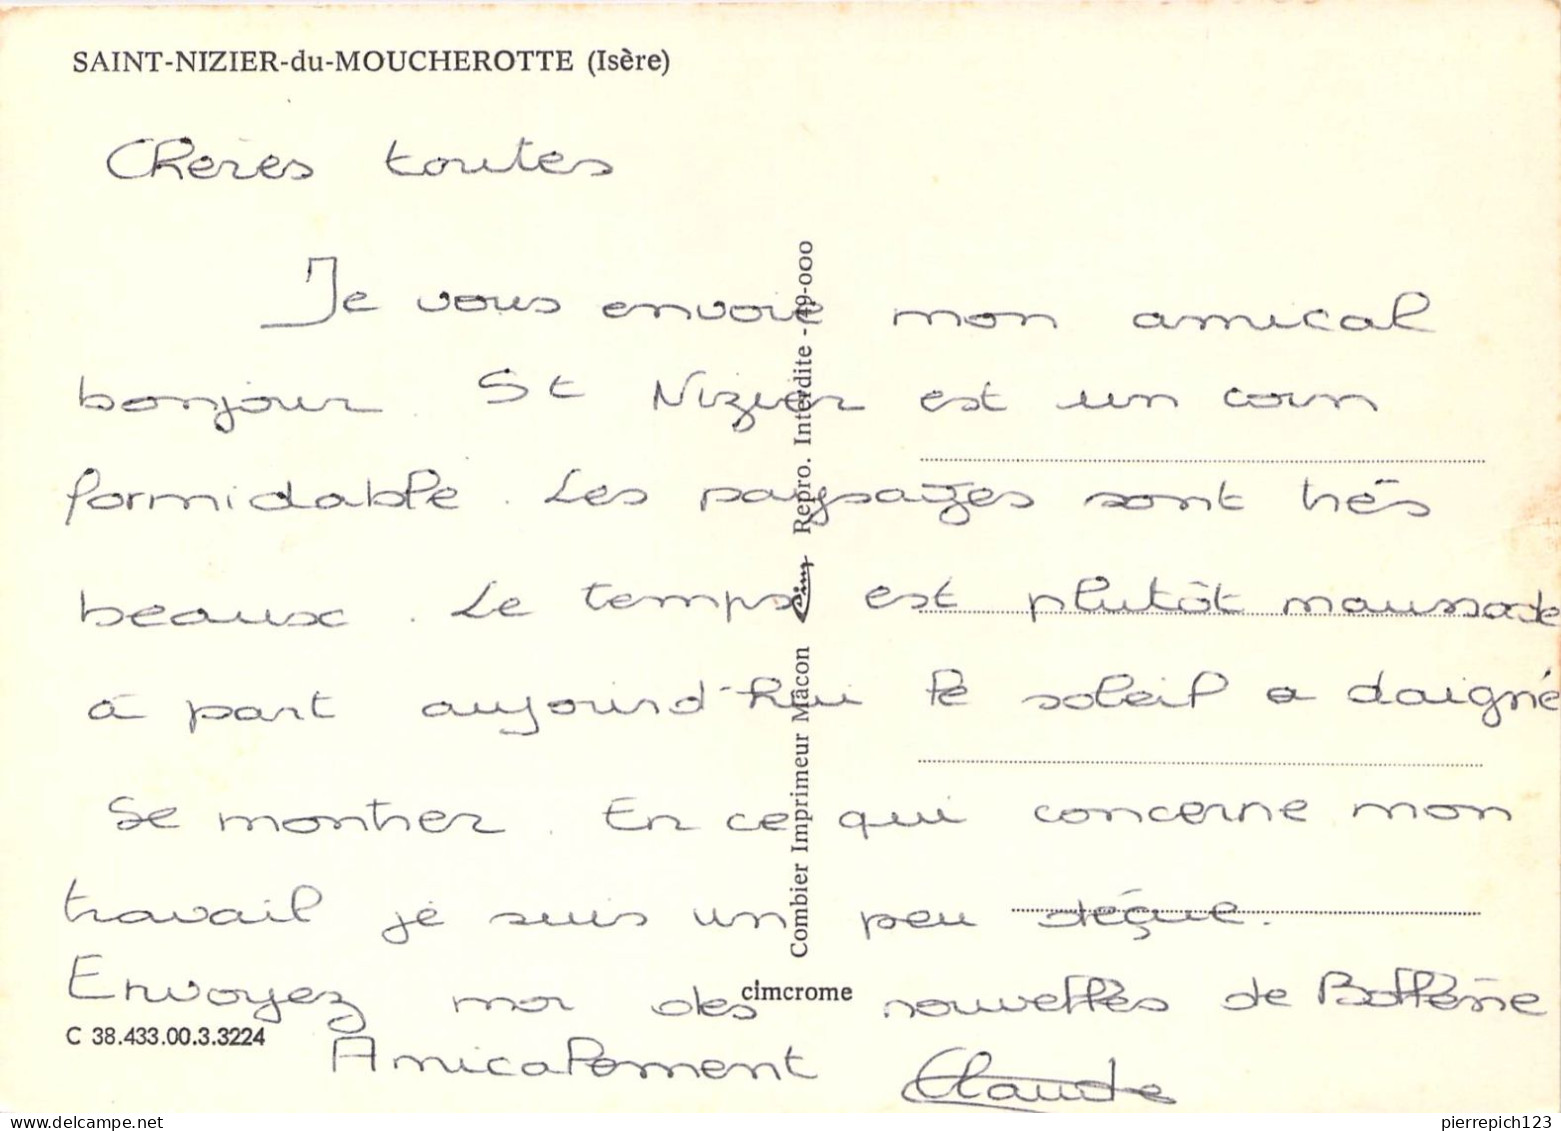 SAINT-NIZIER-du-MOUCHEROTTE (Isère)
Chères toutes
Je vous envoie mon amical
bonjour. St Nizier est un coin
formidable. Les paysages sont très
beaux. Le temps est plutôt maussade
à part aujourd'hui le soleil a daigné
se montrer. En ce qui concerne mon
travail je suis un peu déçue.
Envoyez moi des nouvelles de
Amicalement Claude
Combier Imprimeur Mâcon Cim Repro. Interdite - 49-000
cimcrome
C 38.433.00.3.3224
pierrepich123